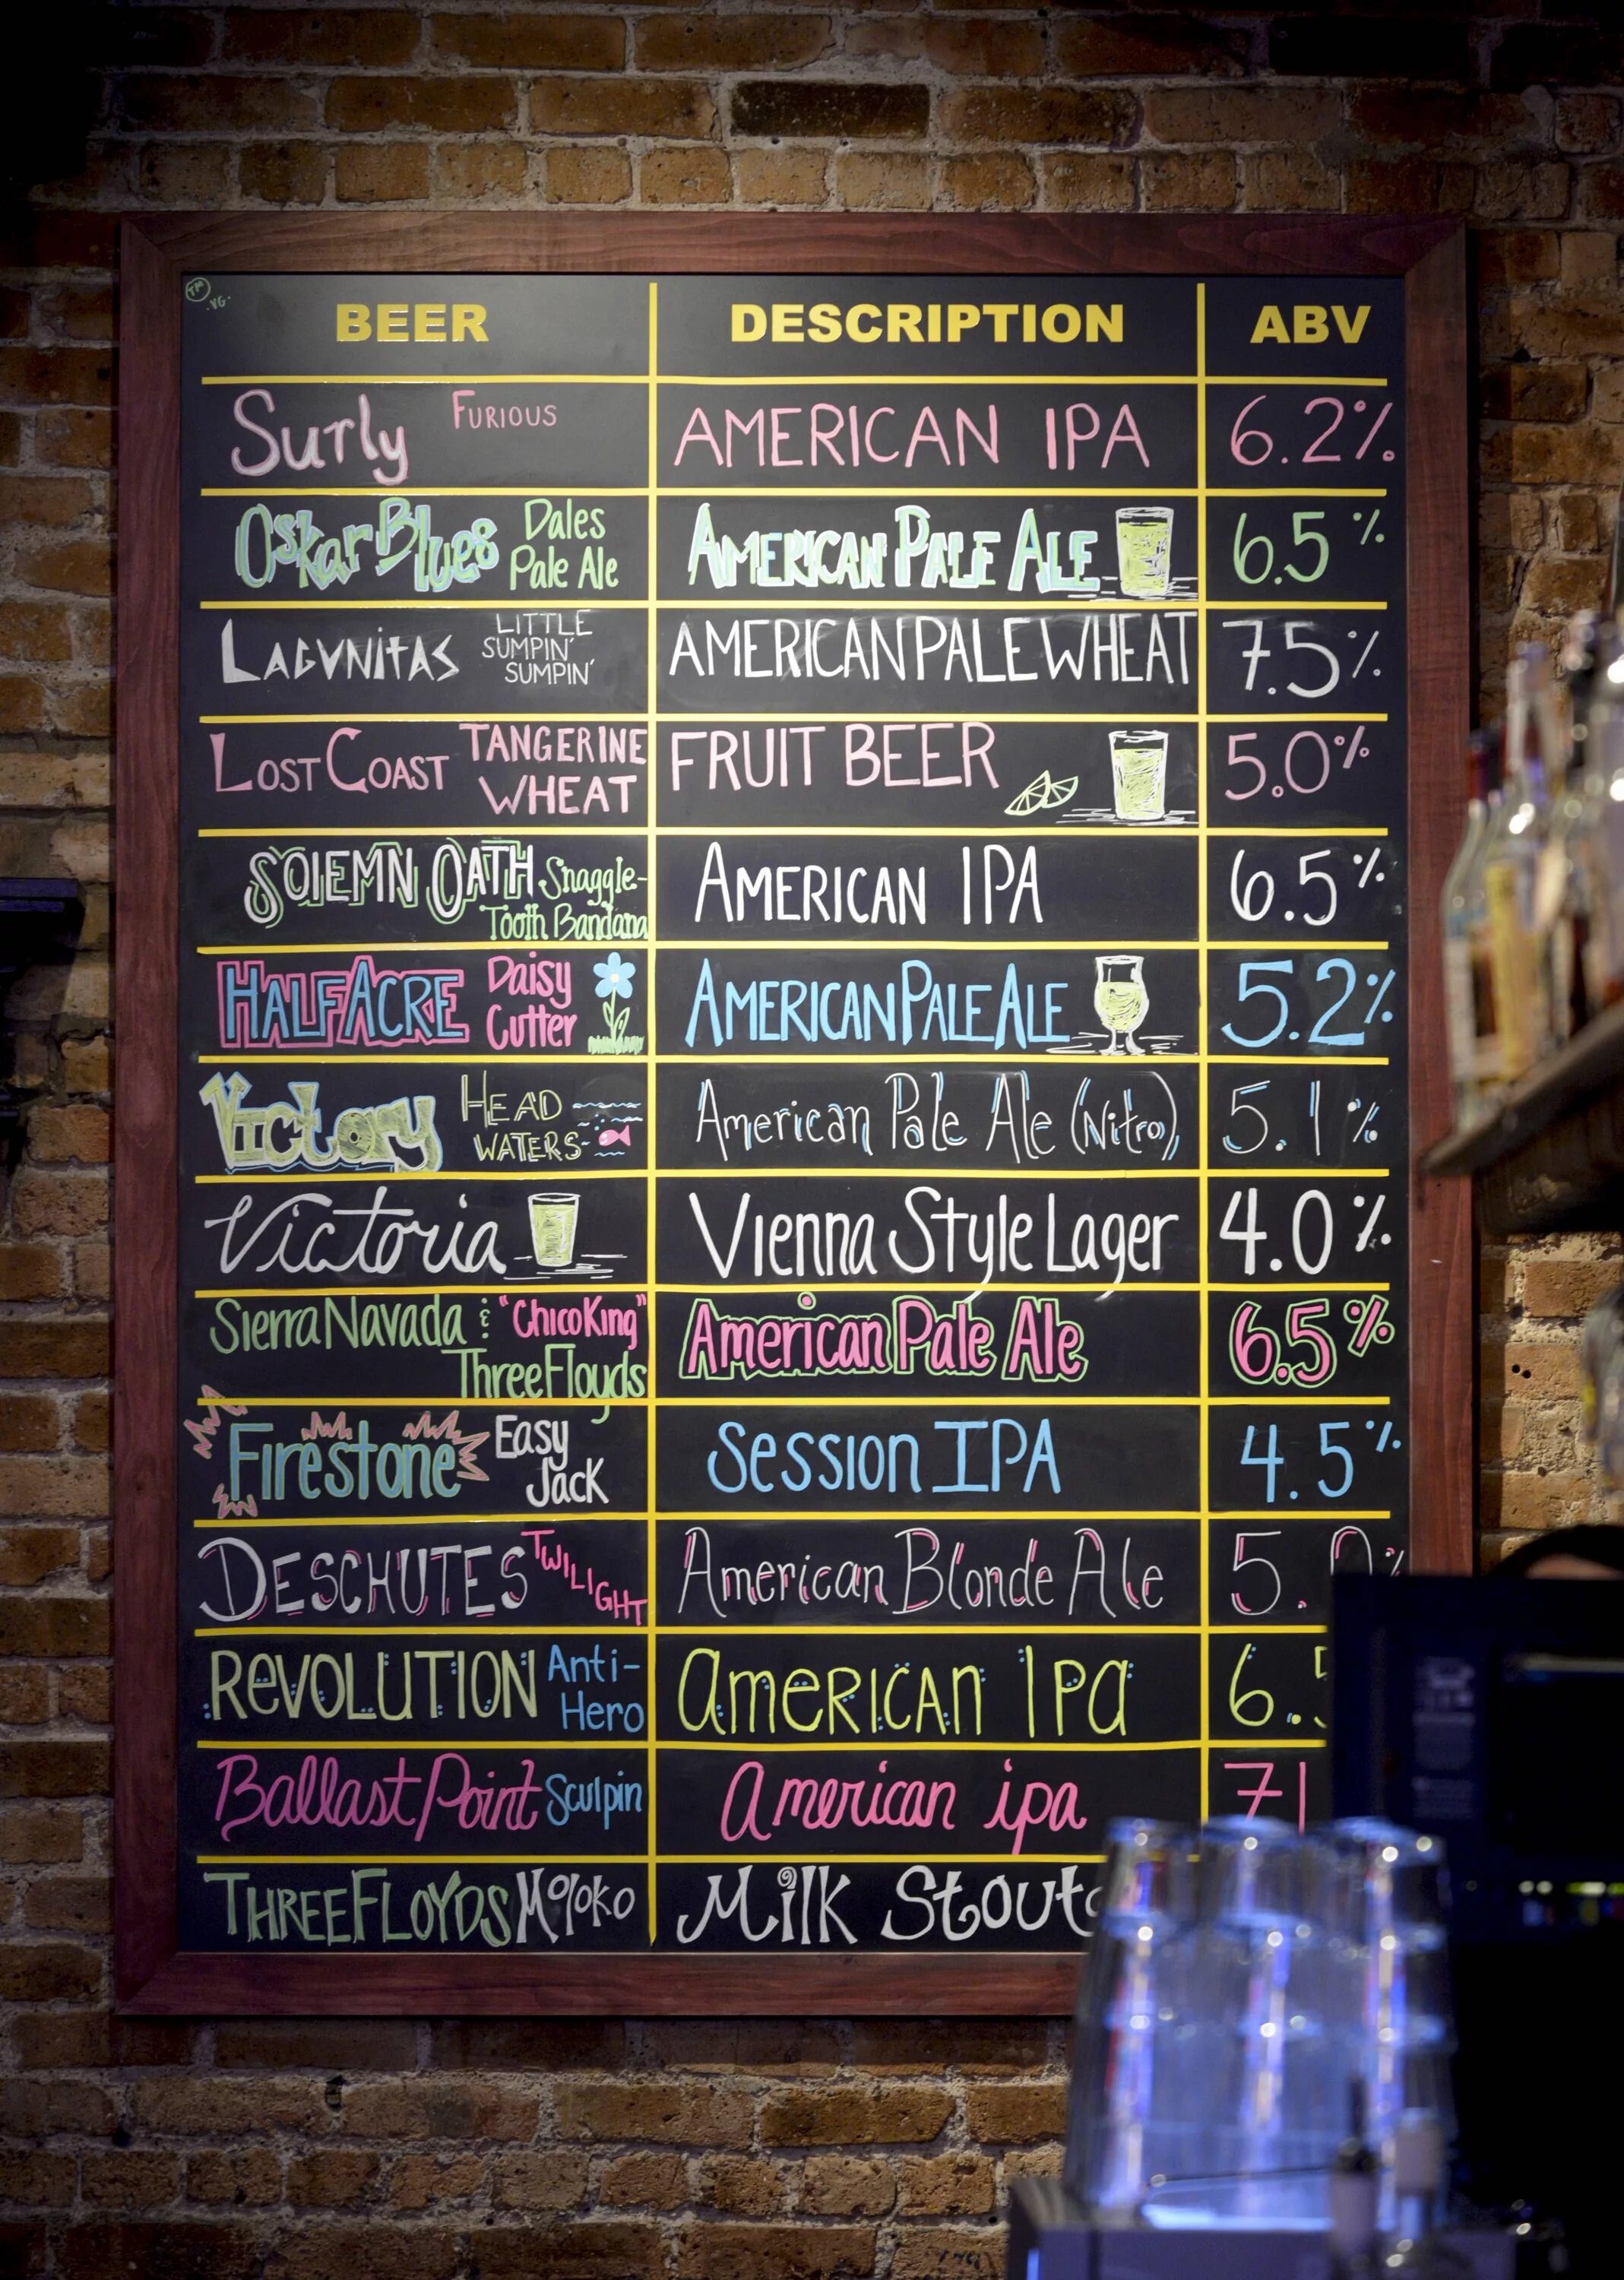 BEER DESCRIPTION ABV
Surly FURIOUS AMERICAN IPA 6.2%
Oskar Blues Dales Pale Ale AMERICAN PALE ALE 6.5%
LAGUNITAS LITTLE SUMPIN' SUMPIN' AMERICAN PALE WHEAT 7.5%
LOST COAST TANGERINE WHEAT FRUIT BEER 5.0%
SOLEMN OATH Snaggle-Tooth Bandana AMERICAN IPA 6.5%
HALF ACRE Daisy Cutter AMERICAN PALE ALE 5.2%
Victory HEAD WATERS American Pale Ale (Nitro) 5.1%
Victoria Vienna Style Lager 4.0%
Sierra Navada & "Chico King" Three Floyds American Pale Ale 6.5%
Firestone Easy Jack Session IPA 4.5%
DESCHUTES TWILIGHT American Blonde Ale 5.0%
REVOLUTION Anti-Hero American IPA 6.5
Ballast Point Sculpin American ipa 7
THREE FLOYDS Moloko Milk Stout